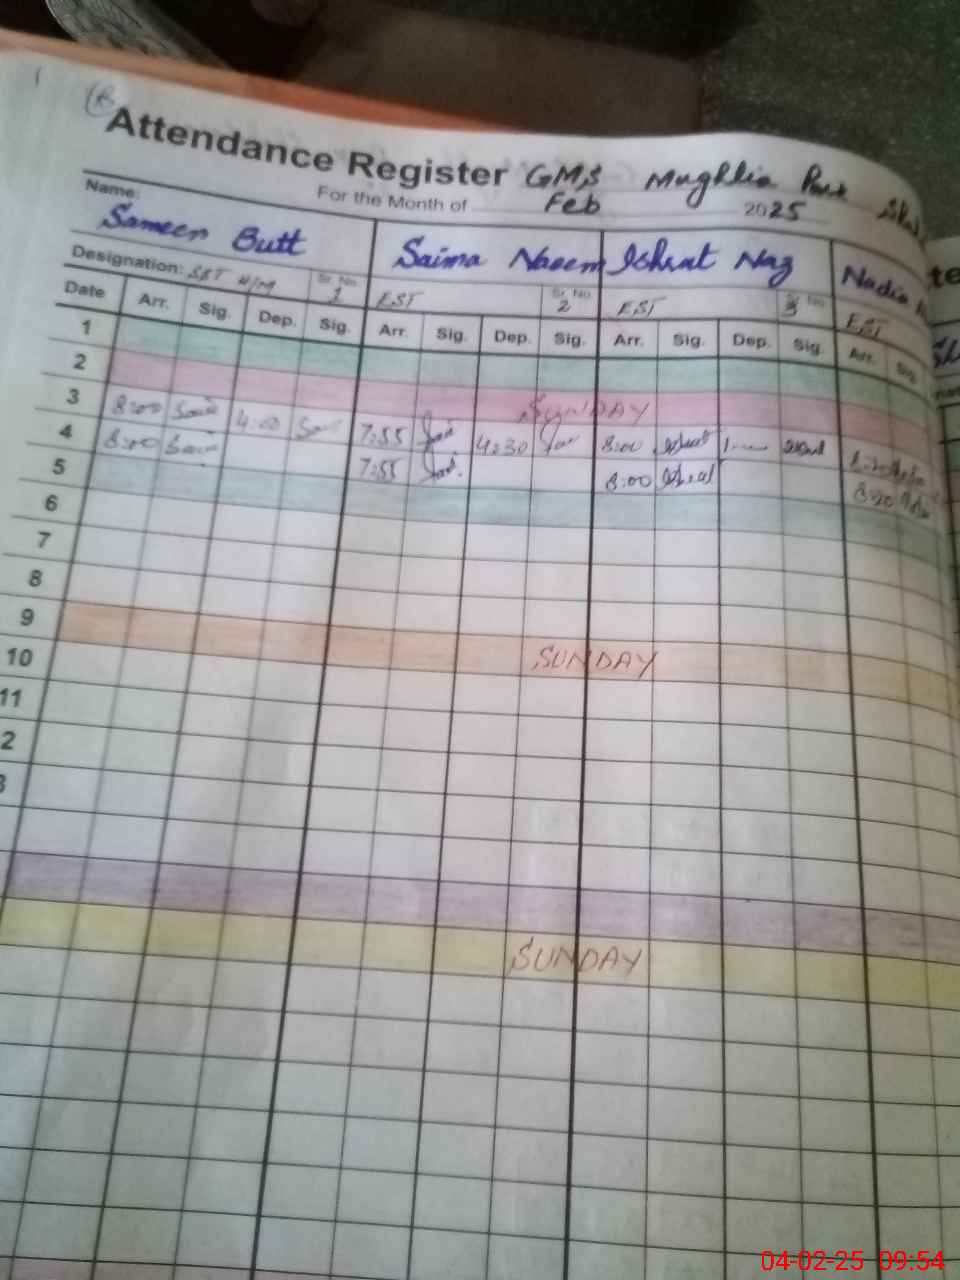 Attendance Register GMS Mughlia Park
For the Month of Feb 2025
Name:
Sameen Butt Saima Naeem Ishrat Naz Nadia
Designation: SST Sr. No. 1 EST Sr. No. 2 EST Sr. No. 3 EST
Date Arr. Sig. Dep. Sig. Arr. Sig. Dep. Sig. Arr. Sig. Dep. Sig. Arr. Sig.
1
2 SUNDAY
3 8:00 4:00 7:55 4:30 8:00 Ishrat
4 8:00 7:55 8:00 Ishrat 8:20
5
6
7
8
9 SUNDAY
10
11
2
3
SUNDAY
04-02-25 09:54